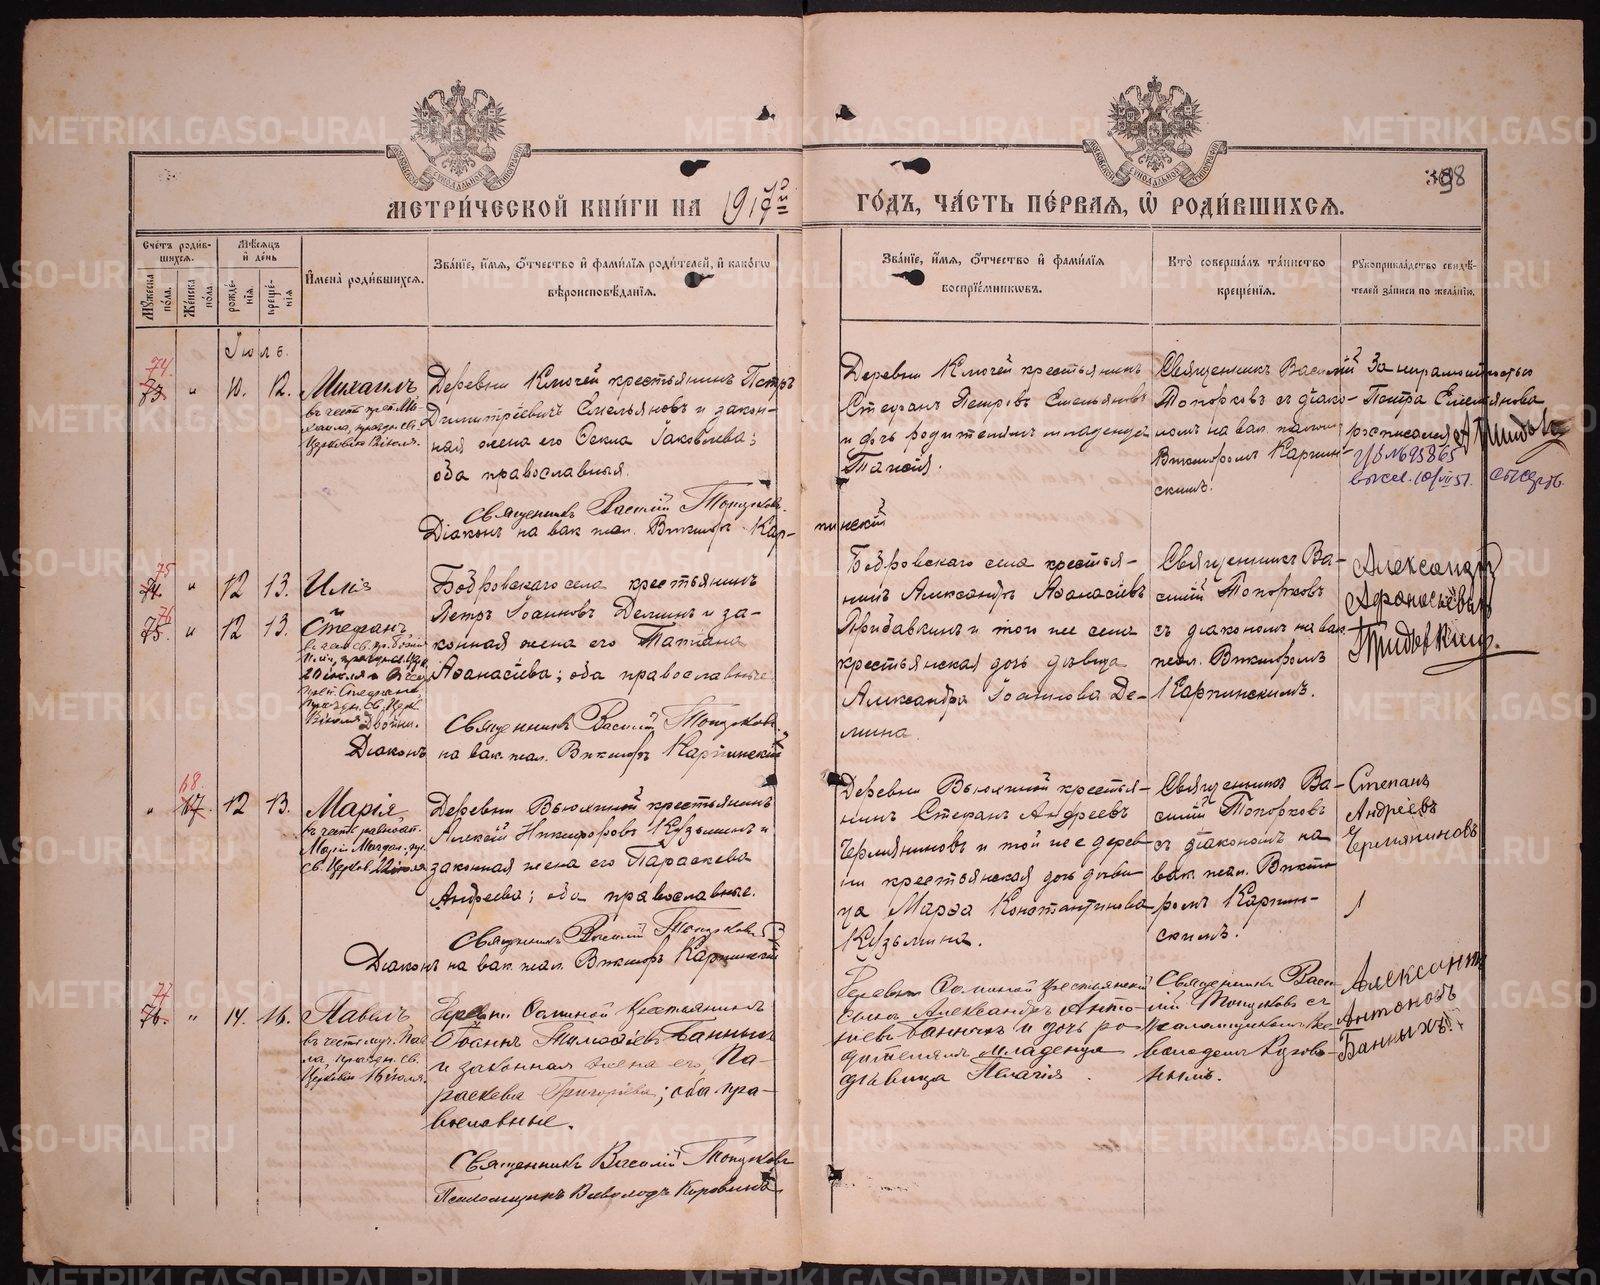 МЕТРИЧЕСКОЙ КНИГИ НА 1917й
ГОДЪ, ЧАСТЬ ПЕРВАЯ, Ѡ РОДИВШИХСЯ.
398
Счетъ родившихся.
Мѣсяцъ и день
Мужеска пола.
Женска пола.
рожденія.
крещенія
Имена родившихся.
Званіе, имя, отчество и фамилія родителей, и какогѡ
вѣроисповѣданія.
Званіе, имя, отчество и фамилія
воспріемниковъ.
Кто совершалъ таинство
крещенія.
Рукоприкладство свидѣ-
телей записи по желанію.
Іюль.
74
73 " 10. 12. Михаилъ
въ честь
Церковію
Деревни Ключей крестьянинъ Петръ
Димитріевичъ Емельяновъ и закон-
ная жена его Ѳекла Іаковлева;
оба православныя.
Священникъ Василій Топорковъ.
Діаконъ на вак. псал. Викторъ Кар-
пинскій
Деревни Ключей крестьянинъ
Стефанъ Петровъ Емельяновъ
и дочь родителямъ младенца
Таисія.
Священникъ Василій
Топорковъ съ діако-
номъ на вак. псалом.
Викторомъ Карпин-
скимъ.
За неграмотностью
Петра Емельянова
росписался
75
74. " 12 13. Илія
76
75. " 12 13. Стефанъ
Двойни.
Бобровскаго села крестьянинъ
Петръ Іоанновъ Деминъ и за-
конная жена его Татіана
Аѳанасіева; оба православные.
Священникъ Василій Топорковъ
Діаконъ на вак. псал. Викторъ Карпинскій
Бобровскаго села крестья-
нинъ Александръ Аѳанасіевъ
Прибавкинъ и того же села
крестьянская дочь дѣвица
Александра Іоаннова Де-
мина.
Священникъ Ва-
силій Топорковъ
съ діакономъ на вак.
псал. Викторомъ
Карпинскимъ.
Александръ
Афонасьевъ
68
" 67. 12 13. Марія
Деревни Вьюхиной крестьянинъ
Алексій Никифоровъ Кузьминъ и
законная жена его Параскева
Андреева; оба православные.
Священникъ Василій Топорковъ
Діаконъ на вак. псал. Викторъ Карпинскій
Деревни Вьюхиной крестья-
нинъ Стефанъ Андреевъ
Чермяниновъ и той же дерев-
ни крестьянская дочь дѣви-
ца Марѳа Константинова
Кузьмина.
Священникъ Ва-
силій Топорковъ
съ діакономъ на
вак. псал. Викто-
ромъ Карпин-
скимъ.
Степанъ
Андреевъ
Чермяниновъ
77
76. " 14. 16. Павелъ
въ честь муч. Пав-
ла, праздн. св.
Церковію 16 іюля.
Деревни Соминой Крестьянинъ
Іоаннъ Банныхъ
и законная жена его Па-
раскева Григоріева; оба пра-
вославные.
Священникъ Василій Топорковъ
Псаломщикъ Всеволодъ Коровинъ
Деревни Соминой крестьянскій
сынъ Александръ Анто-
ніевъ Банныхъ и дочь ро-
дителямъ младенца
дѣвица Пелагія.
Священникъ Васи-
лій Топорковъ съ
псаломщикомъ Все-
володомъ
Александръ
Антоновъ
Банныхъ.
METRIKI.GASO-URAL.RU